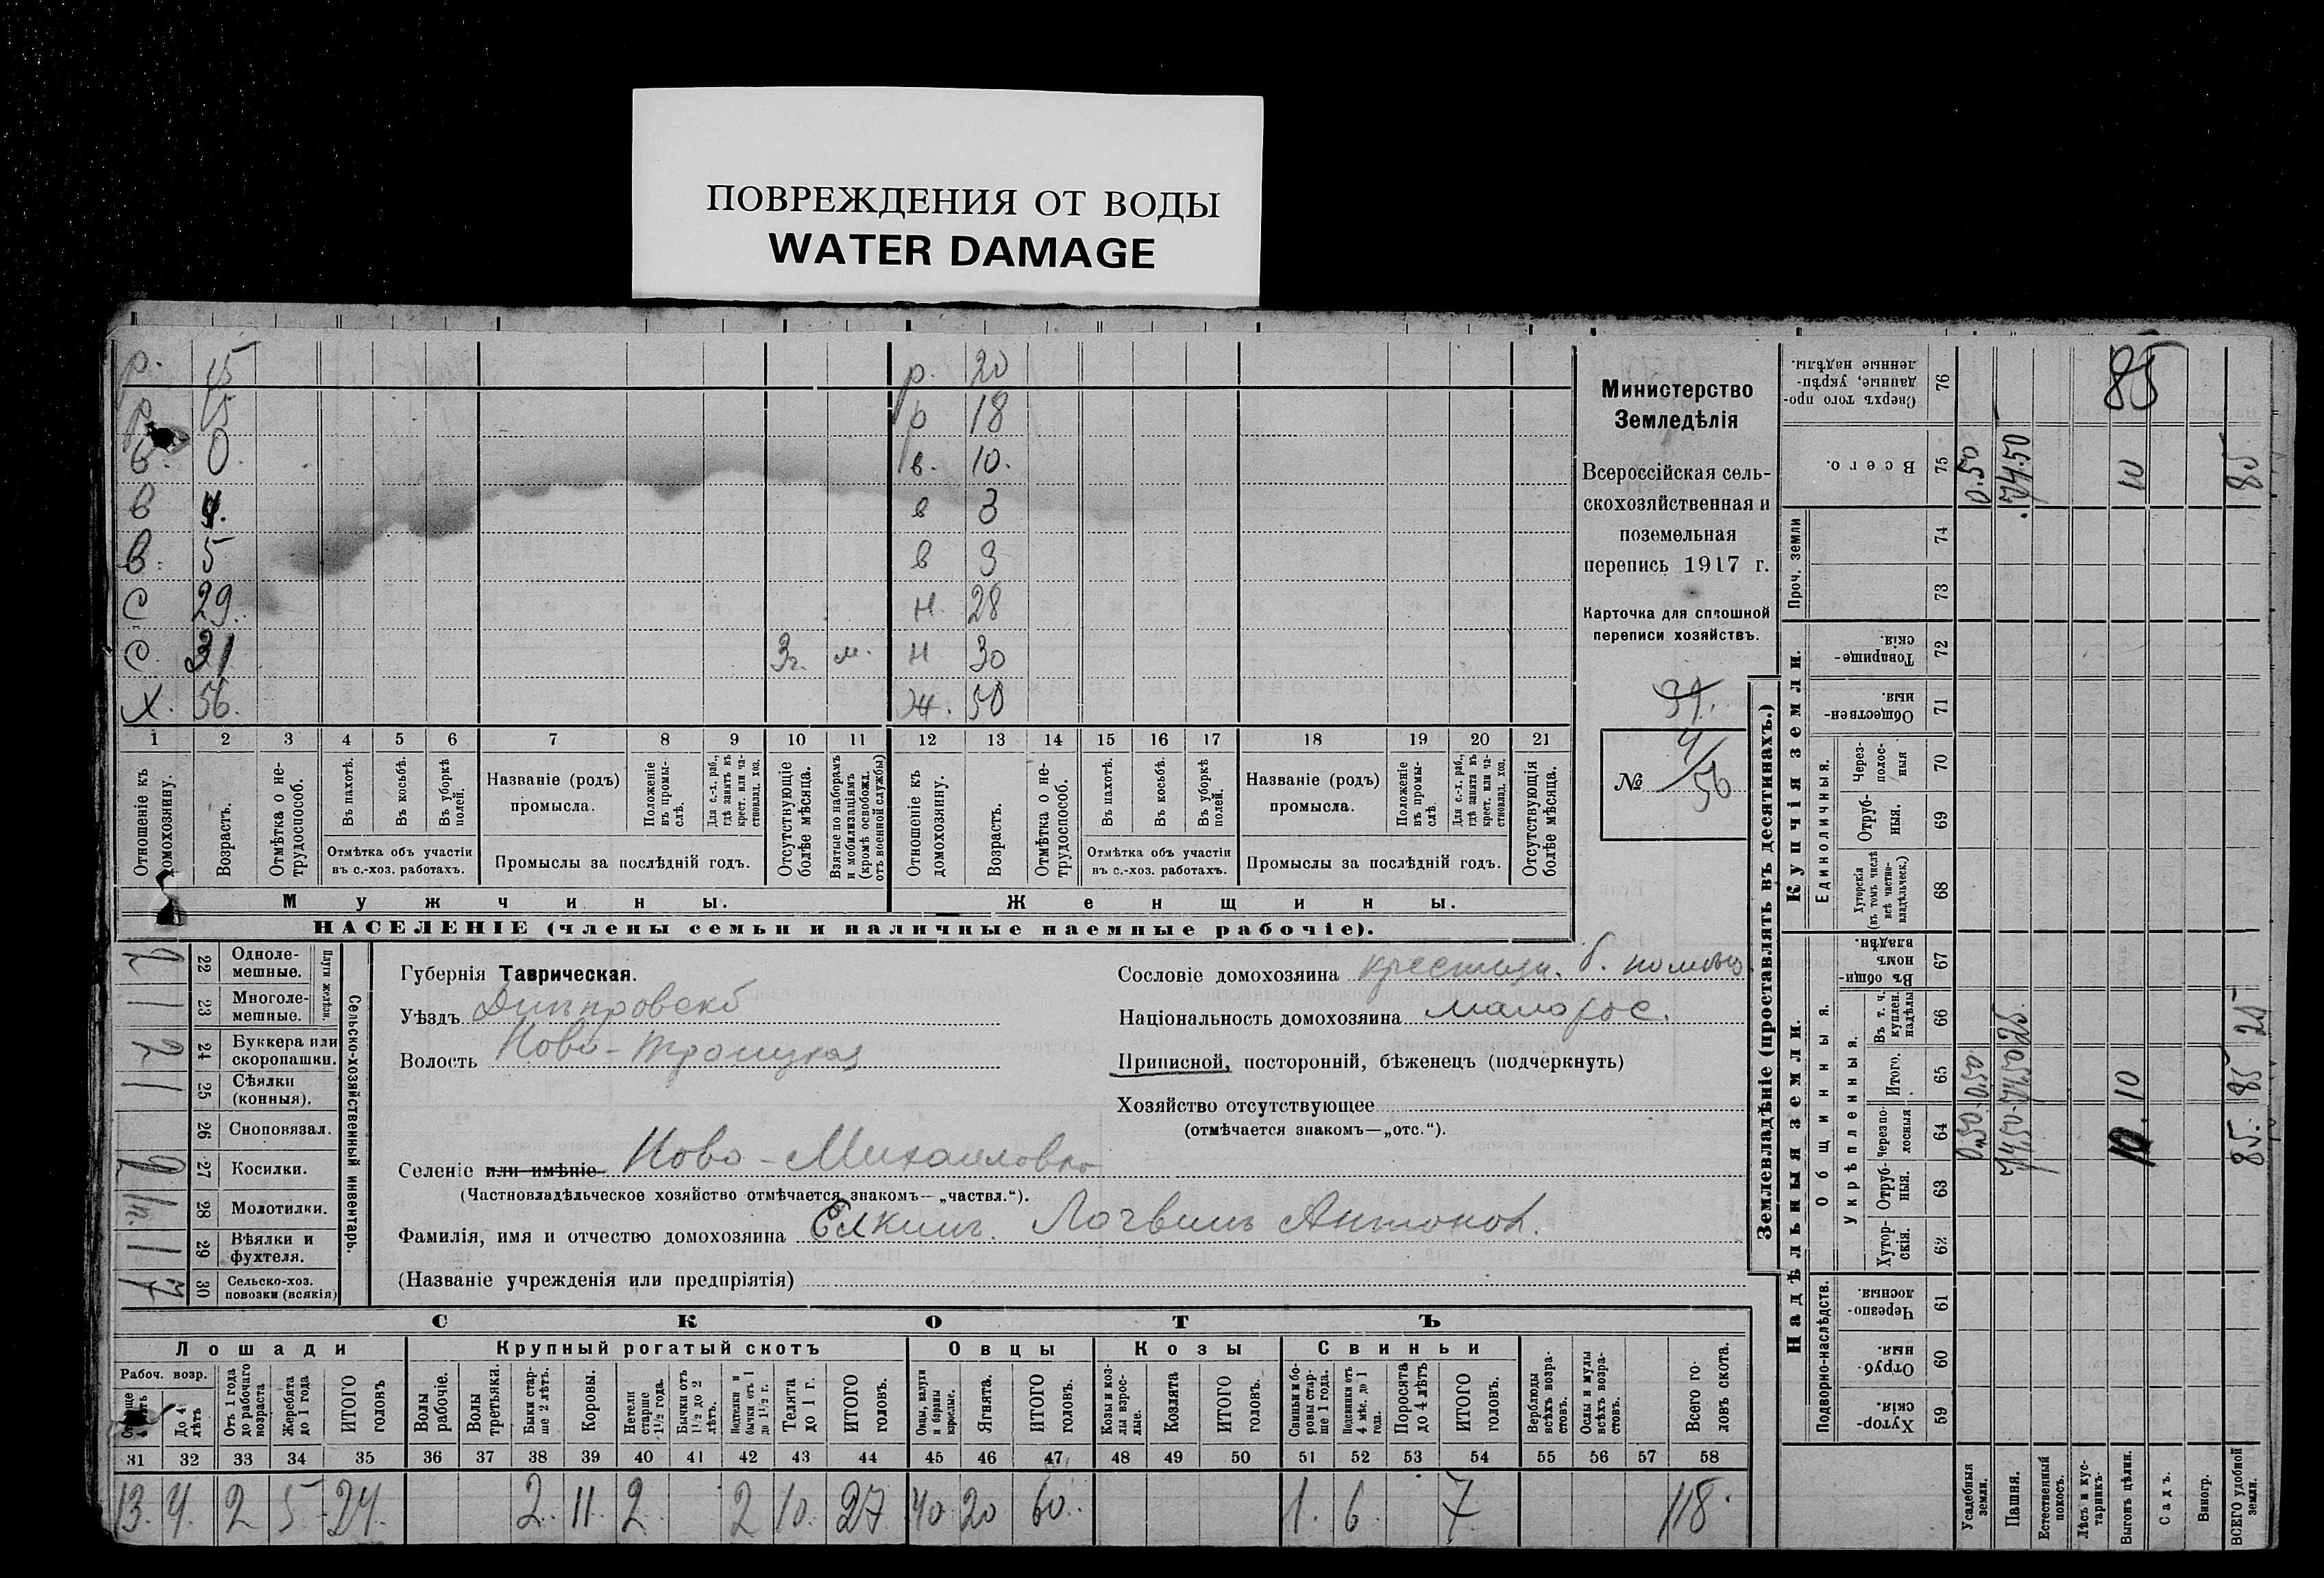 ПОВРЕЖДЕНИЯ ОТ ВОДЫ
WATER DAMAGE
р. 15 р. 20
р 15 р 18
в. 0 в. 10.
в 4. в 3
в. 5 в 3
с 29. н. 28
с. 31 3г. м. н 30
х. 56. ж. 50
1 2 3 4 5 6 7 8 9 10 11 12 13 14 15 16 17 18 19 20 21
Отношеніе къ домохозяину.
Возрастъ.
Отмѣтка о не-трудоспособ.
Въ пахотѣ.
Въ косьбѣ.
Въ уборкѣ полей.
Отмѣтка объ участіи
въ с.-хоз. работахъ.
Названіе (родъ)
промысла.
Положеніе въ промы-слѣ.
Для с.-х. раб., гдѣ занятъ въ крест. или ча-стновлад. хоз.
Промыслы за послѣдній годъ.
Отсутствующіе болѣе мѣсяца.
Взятые по наборамъ и мобилизаціямъ (кромѣ освобожд. отъ военной службы)
Отношеніе къ домохозяину.
Возрастъ.
Отмѣтка о не-трудоспособ.
Въ пахотѣ.
Въ косьбѣ.
Въ уборкѣ полей.
Отмѣтка объ участіи
въ с.-хоз. работахъ.
Названіе (родъ)
промысла.
Положеніе въ промы-слѣ.
Для с.-х. раб., гдѣ занятъ въ крест. или ча-стновлад. хоз.
Промыслы за послѣдній годъ.
Отсутствующія болѣе мѣсяца.
Мужчины. Женщины.
НАСЕЛЕНІЕ (члены семьи и наличные наемные рабочіе).
Министерство
Земледѣлія
Всероссійская сель-
скохозяйственная и
поземельная
перепись 1917 г.
Карточка для сплошной
переписи хозяйствъ.
31.
№ 4/56
2 22 Одноле-мешные.
1 23 Многоле-мешные.
Плуги желѣзн.
2 24 Буккера или скоропашки.
1 25 Сѣялки (конныя).
26 Сноповязал.
2 27 Косилки.
28 Молотилки.
1 29 Вѣялки и фухтеля.
30 Сельско-хоз. повозки (всякія)
Сельско-хозяйственный инвентарь.
Губернія Таврическая.
Уѣздъ Днѣпровскъ
Волость Ново-Троицкая
Селеніе или имѣніе Ново-Михаиловка
(Частновладѣльческое хозяйство отмѣчается знакомъ—„частвл.“).
Фамилія, имя и отчество домохозяина Елкинъ. Логвинъ Антонов.
(Названіе учрежденія или предпріятія)
Сословіе домохозяина крестьян. б. помѣщ
Національность домохозяина малорос.
Приписной, посторонній, бѣженецъ (подчеркнуть)
Хозяйство отсутствующее
(отмѣчается знакомъ—„отс.“).
СКОТЪ
Лошади Крупный рогатый скотъ Овцы Козы Свиньи
Рабоч. возр.
До 4 лѣтъ
Отъ 1 года до рабочаго возраста
Жеребята до 1 года
ИТОГО головъ
Волы рабочіе.
Волы третьяки.
Быки стар-ше 2 лѣтъ.
Коровы.
Нетели старше 1½ года.
Бычки отъ 1½ до 2 лѣтъ.
Подтелки и бычки отъ 1 до 1½ г.
Телята до 1 г.
ИТОГО головъ.
Овцы, валухи и бараны взрослые.
Ягнята.
ИТОГО головъ.
Козы и коз-лы взрос-лые.
Козлята
ИТОГО головъ.
Свиньи и бо-ровы стар-ше 1 года.
Подсвинки отъ 4 мѣс. до 1 года.
Поросята до 4 лѣтъ
ИТОГО головъ.
Верблюды всѣхъ возра-стовъ.
Ослы и мулы всѣхъ возра-стовъ.
Всего го-ловъ скота.
31 32 33 34 35 36 37 38 39 40 41 42 43 44 45 46 47 48 49 50 51 52 53 54 55 56 57 58
13. 4. 2 5 24. 2. 11. 2. 2 10. 27 40. 20 60. 1. 6. 7 118.
Землевладѣніе (проставлять въ десятинахъ.)
Надѣльныя земли. Купчія земли. Проч. земли
Подворно-наслѣдств. Общинныя. Укрѣпленныя. Единоличныя.
Хутор-скія. 59
Отруб-ныя. 60
Черезпо-лосныя. 61
Хутор-скія. 62
Отруб-ныя. 63
Черезпо-лосныя 64
Итого. 65
Въ т. ч. куплен. надѣлы 66
Въ общин-номъ владѣн. 67
Хуторскія (въ томъ числѣ всѣ частно-владѣльческ.) 68
Отруб-ныя. 69
Через-полос-ныя 70
Обществен-ныя. 71
Товарище-скія. 72
73
74
Всего. 75
Сверхъ того про-данные, укрѣп-ленные надѣлы. 76
Усадебныя земли. 0.50 0.50 0.50
Пашня. 74,50 74.50 25. 74.50
Естественный покосъ.
Лѣсъ и кус-тарникъ.
Выгонъ цѣлин. 10. 10 10 85
Садъ.
Виногр.
ВСЕГО удобной земли. 85. 85 25 85